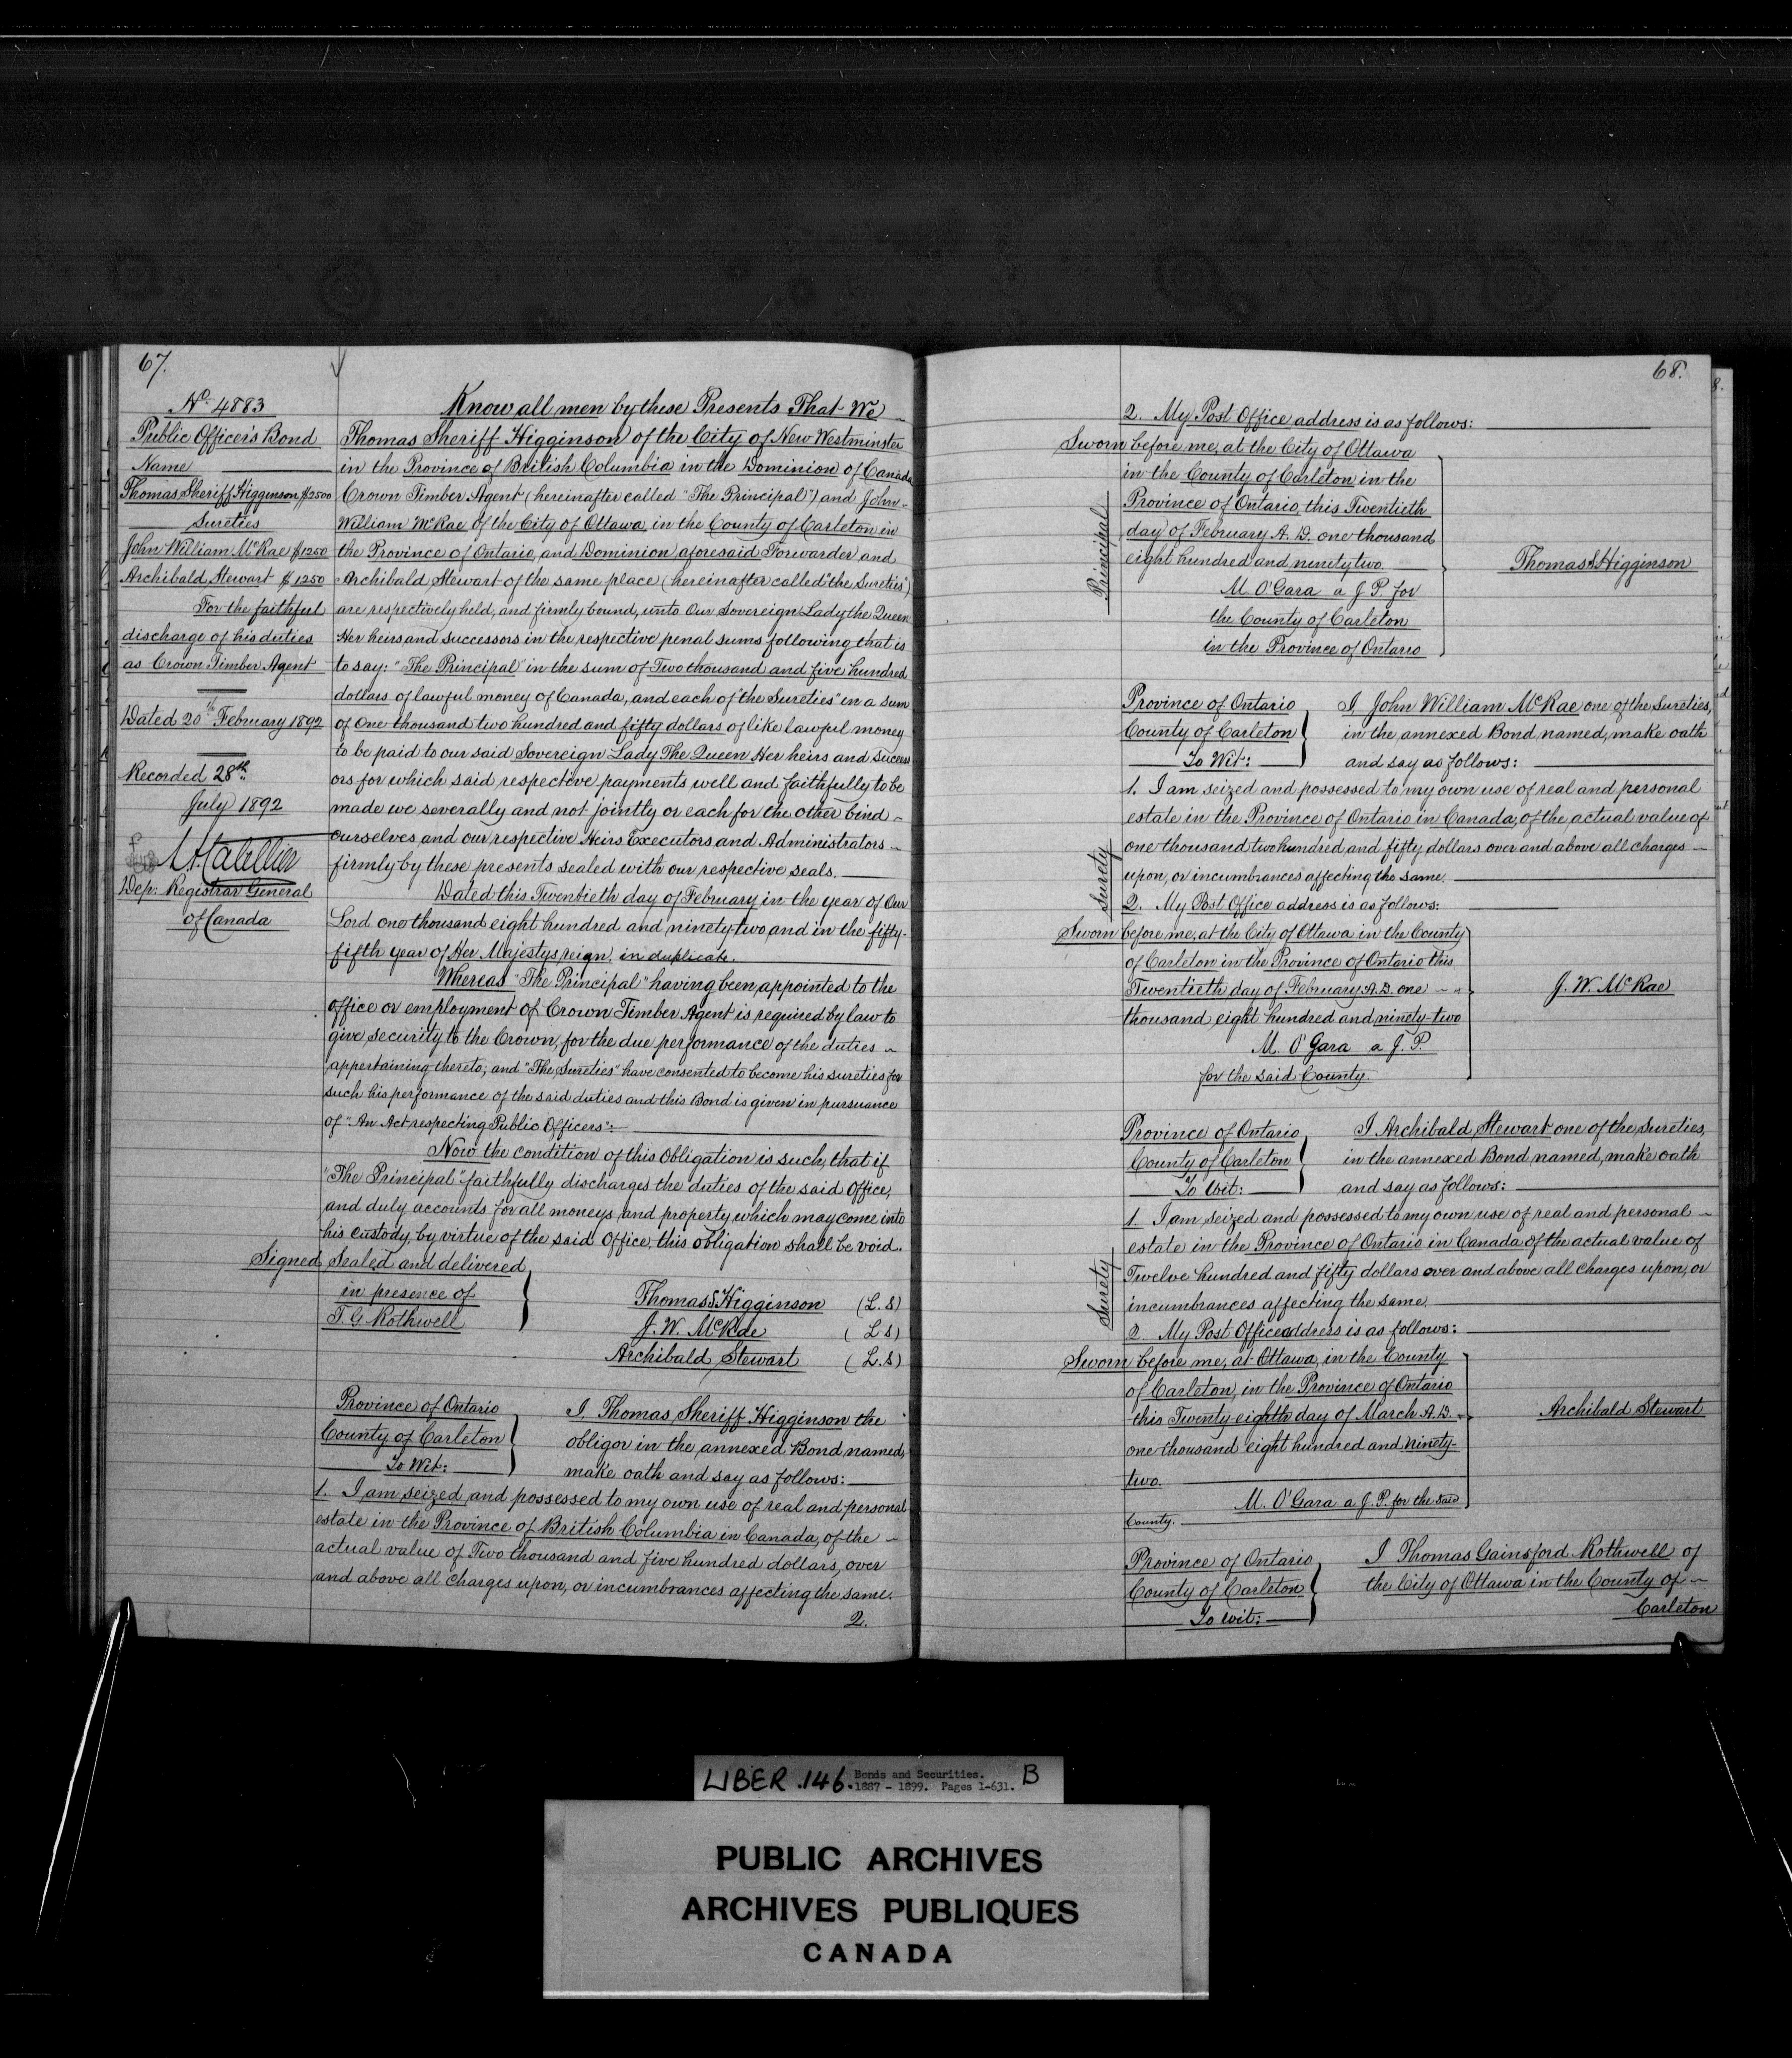 67.
No. 4883
Public Officer's Bond
Name
Thomas Sheriff Higginson $2500
Sureties
John William McRae $1250
Archibald Stewart $1250
For the faithful
discharge of his duties
as Crown Timber Agent
Dated 20th February 1892
Recorded 28th
July 1892
Dep: Registrar General
of Canada
Know all men by these Presents That We
Thomas Sheriff Higginson of the City of New Westminster
in the Province of British Columbia in the Dominion of Canada
Crown Timber Agent (hereinafter called "The Principal") and John
William McRae of the City of Ottawa in the County of Carleton in
the Province of Ontario, and Dominion aforesaid Forwarder and
Archibald Stewart of the same place (hereinafter called "the Sureties")
are respectively held, and firmly bound, unto Our Sovereign Lady the Queen
Her heirs and successors in the respective penal sums following that is
to say: "The Principal" in the sum of Two thousand and five hundred
dollars of lawful money of Canada, and each of "the Sureties" in a sum
of One thousand two hundred and fifty dollars of like lawful money
to be paid to our said Sovereign Lady The Queen Her heirs and Success
ors for which said respective payments well and faithfully to be
made we severally and not jointly or each for the other bind
ourselves and our respective Heirs Executors and Administrators
firmly by these presents sealed with our respective seals.
Dated this Twentieth day of February in the year of Our
Lord one thousand eight hundred and ninety-two and in the fifty-
fifth year of Her Majestys reign. in duplicate.
Whereas "The Principal" having been appointed to the
office or employment of Crown Timber Agent is required by law to
give security to the Crown, for the due performance of the duties
appertaining thereto; and "The Sureties" have consented to become his sureties for
such his performance of the said duties and this Bond is given in pursuance
of "An Act respecting Public Officers":
Now the condition of this Obligation is such, that if
"The Principal" faithfully discharges the duties of the said Office,
and duly accounts for all moneys and property which may come into
his custody by virtue of the said Office, this obligation shall be void.
Signed Sealed and delivered
in presence of
T. G. Rothwell
Thomas S. Higginson (L.S)
J. W. McRae (L S)
Archibald Stewart (L.S)
Province of Ontario
County of Carleton
To Wit:
I, Thomas Sheriff Higginson the
obligor in the annexed Bond named,
make oath and say as follows:
1. I am seized and possessed to my own use of real and personal
estate in the Province of British Columbia in Canada, of the
actual value of Two thousand and five hundred dollars, over
and above all charges upon, or incumbrances affecting the same.
2.
68.
8.
2. My Post Office address is as follows:
Principal
Sworn before me, at the City of Ottawa
in the County of Carleton in the
Province of Ontario, this Twentieth
day of February A. D. one thousand
eight hundred and ninety two
M. O'Gara a J. P. for
the County of Carleton
in the Province of Ontario
Thomas S Higginson
Province of Ontario
County of Carleton
To Wit:
I, John William McRae one of the Sureties,
in the annexed Bond named, make oath
and say as follows:
1. I am seized and possessed to my own use of real and personal
estate in the Province of Ontario in Canada, of the actual value of
one thousand two hundred and fifty dollars over and above all charges
upon, or incumbrances affecting the same.
2. My Post Office address is as follows:
Surety
Sworn before me, at the City of Ottawa in the County
of Carleton in the Province of Ontario this
Twentieth day of February A. D. one
thousand eight hundred and ninety-two
M. O'Gara a J. P.
for the said County.
J. W. McRae
Province of Ontario
County of Carleton
To Wit:
I Archibald Stewart one of the Sureties,
in the annexed Bond named, make oath
and say as follows:
1. I am seized and possessed to my own use of real and personal
estate in the Province of Ontario in Canada of the actual value of
Twelve hundred and fifty dollars over and above all charges upon, or
incumbrances affecting the same.
2. My Post Office address is as follows:
Surety
Sworn before me, at Ottawa, in the County
of Carleton, in the Province of Ontario
this Twenty-eighth day of March A. D.
one thousand eight hundred and ninety-
two.
M. O'Gara a J. P. for the said
County.
Archibald Stewart
Province of Ontario
County of Carleton
To wit:
I Thomas Gainsford Rothwell of
the City of Ottawa in the County of
Carleton
LIBER .146. Bonds and Securities. B
1887 - 1899. Pages 1-631.
PUBLIC ARCHIVES
ARCHIVES PUBLIQUES
CANADA